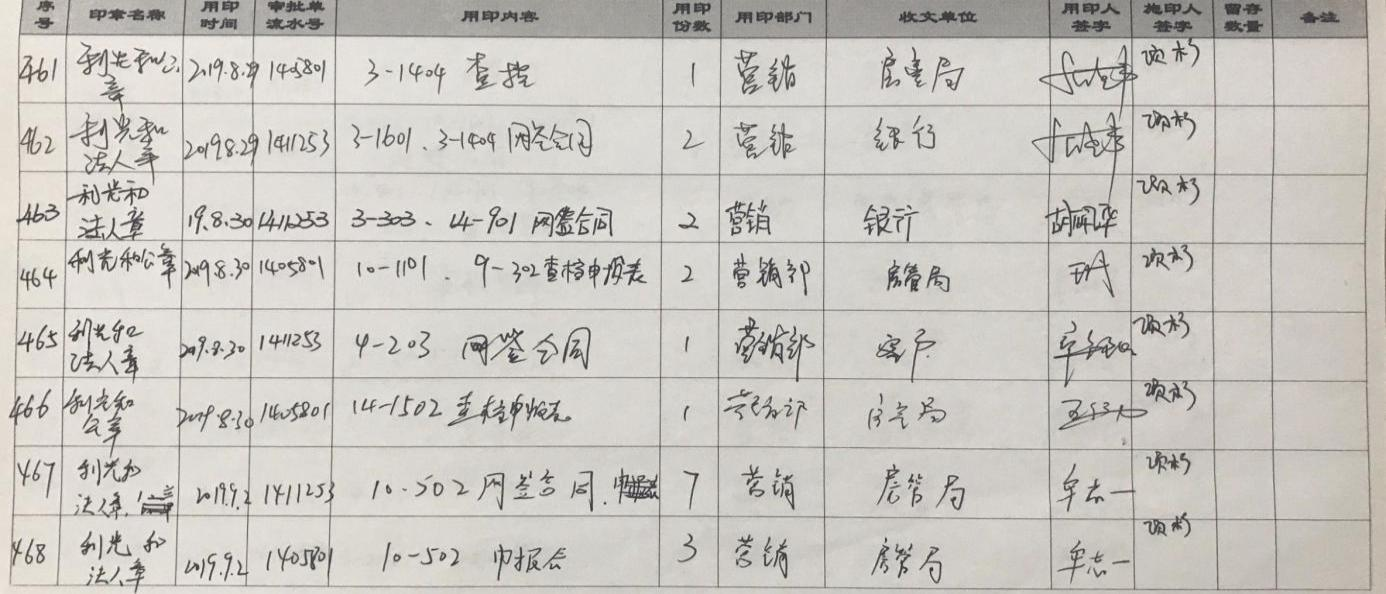 序号 印章名称 用印时间 审批单流水号 用印内容 用印份数 用印部门 收文单位 用印人签字 施印人签字 留存数量 备注
461 利光和公章 2019.8.29 1405801 3-1404 查控 1 营销 房管局 项杉
462 利光和法人章 2019.8.29 1411253 3-1601、3-1404 网签合同 2 营销 银行 项杉
463 利光和法人章 19.8.30 1411253 3-303、14-901 网签合同 2 营销 银行 项杉
464 利光和公章 2019.8.30 1405801 10-1101、9-302查档申报表 2 营销部 房管局 项杉
465 利光和法人章 2019.8.30 1411253 4-203 网签合同 1 营销部 客户 项杉
466 利光和公章 2019.8.30 1405801 14-1502 查档申报表 1 营销部 房管局 项杉
467 利光和法人章、 2019.9.2 1411253 10-502 网签合同、 7 营销 房管局 牟志一 项杉
468 利光和法人章 2019.9.2 1405801 10-502 申报表 3 营销 房管局 牟志一 项杉